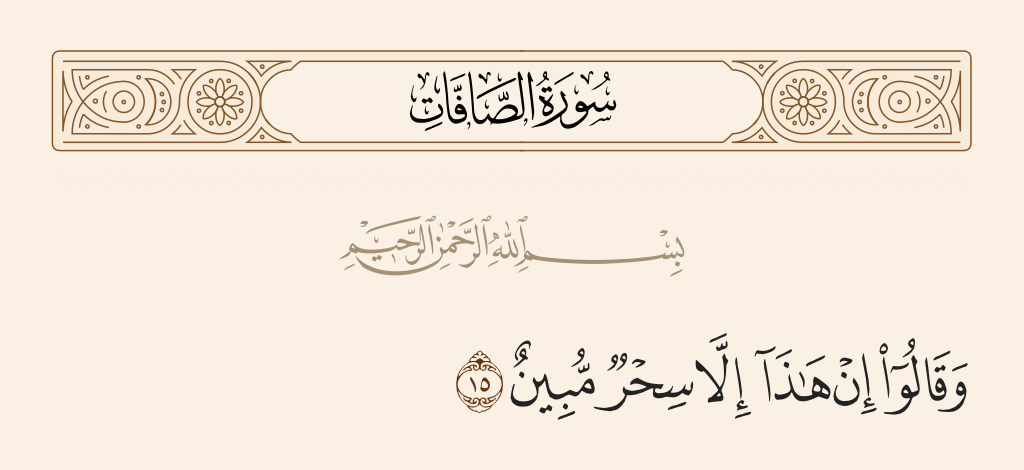 سُورَةُ الصَّافَّاتِ
بِسْمِ ٱللَّهِ ٱلرَّحْمَٰنِ ٱلرَّحِيمِ
وَقَالُوٓا۟ إِنْ هَٰذَآ إِلَّا سِحْرٌ مُّبِينٌ ١٥